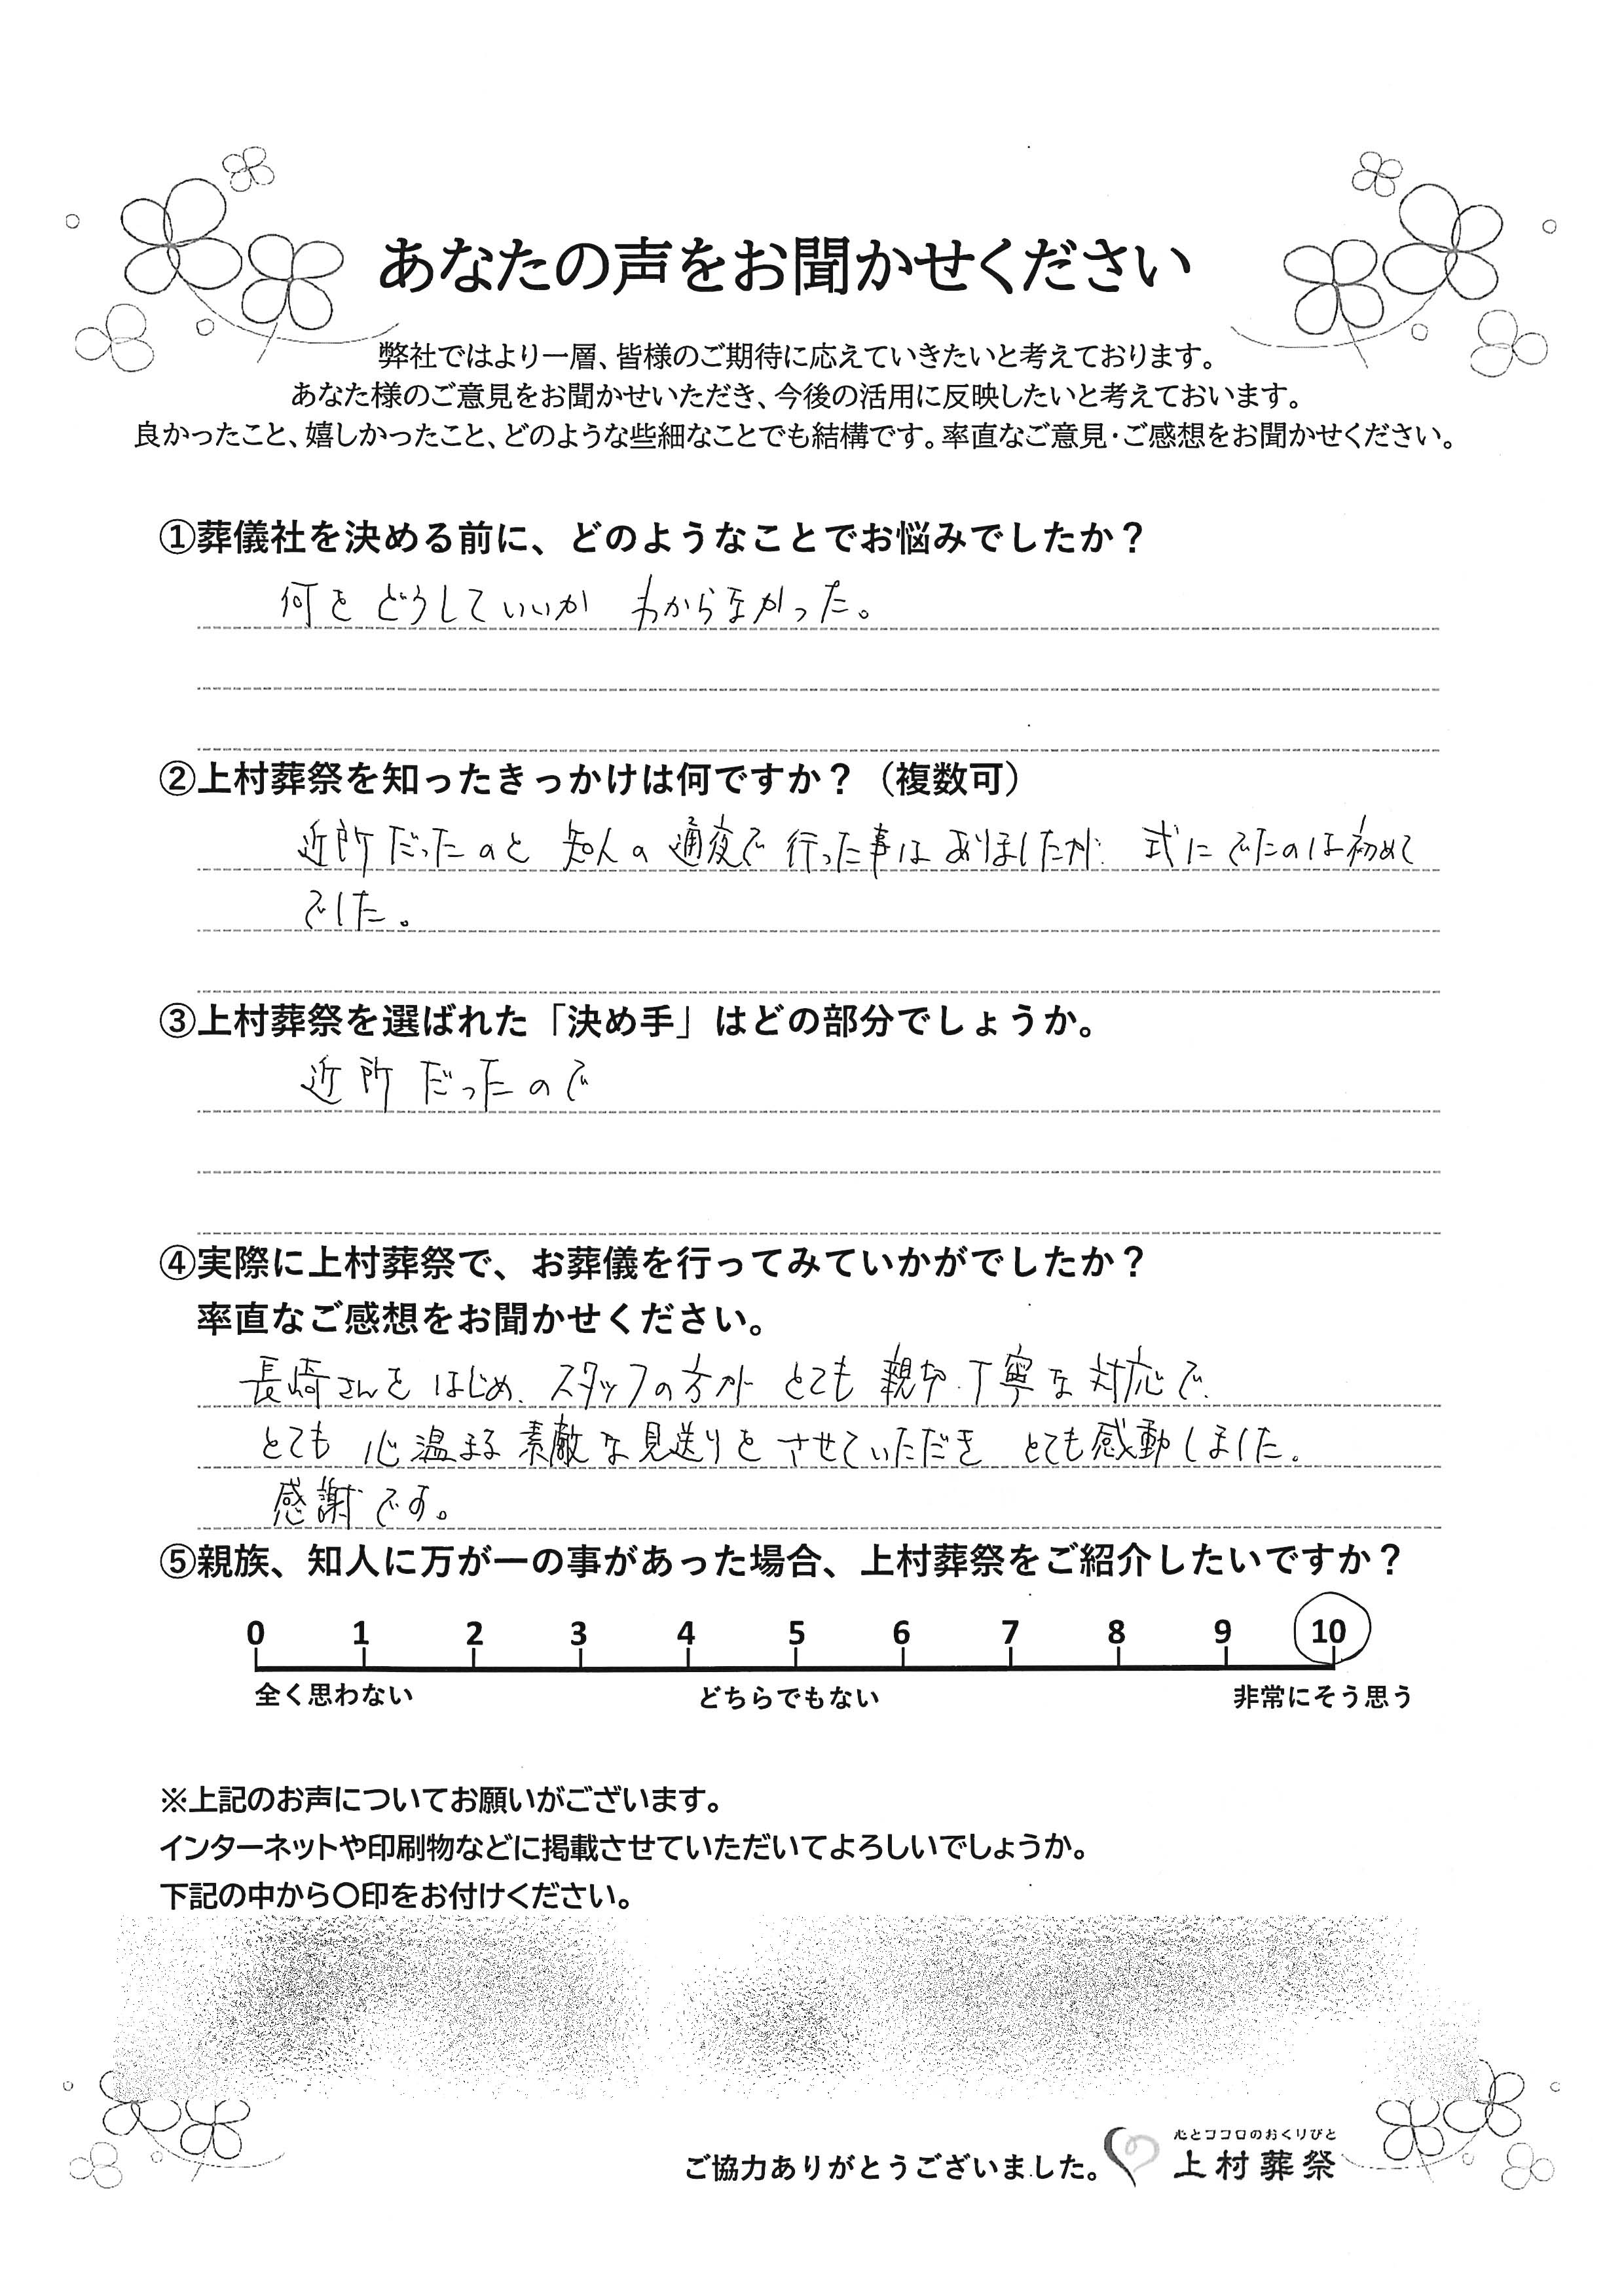 あなたの声をお聞かせください
弊社ではより一層、皆様のご期待に応えていきたいと考えております。
あなた様のご意見をお聞かせいただき、今後の活用に反映したいと考えておいます。
良かったこと、嬉しかったこと、どのような些細なことでも結構です。率直なご意見・ご感想をお聞かせください。
①葬儀社を決める前に、どのようなことでお悩みでしたか？
何をどうしていいか わからなかった。
②上村葬祭を知ったきっかけは何ですか？（複数可）
近所だったのと 知人の通夜で行った事はありましたが 式にでたのは初めて
でした。
③上村葬祭を選ばれた「決め手」はどの部分でしょうか。
近所だったので
④実際に上村葬祭で、お葬儀を行ってみていかがでしたか？
率直なご感想をお聞かせください。
長崎さんをはじめ、スタッフの方が とても 親切、丁寧な対応で、
とても 心温まる素敵な見送りをさせていただき とても感動しました。
感謝です。
⑤親族、知人に万が一の事があった場合、上村葬祭をご紹介したいですか？
0 1 2 3 4 5 6 7 8 9 10
全く思わない どちらでもない 非常にそう思う
※上記のお声についてお願いがございます。
インターネットや印刷物などに掲載させていただいてよろしいでしょうか。
下記の中から〇印をお付けください。
心とココロのおくりびと
ご協力ありがとうございました。 上村葬祭